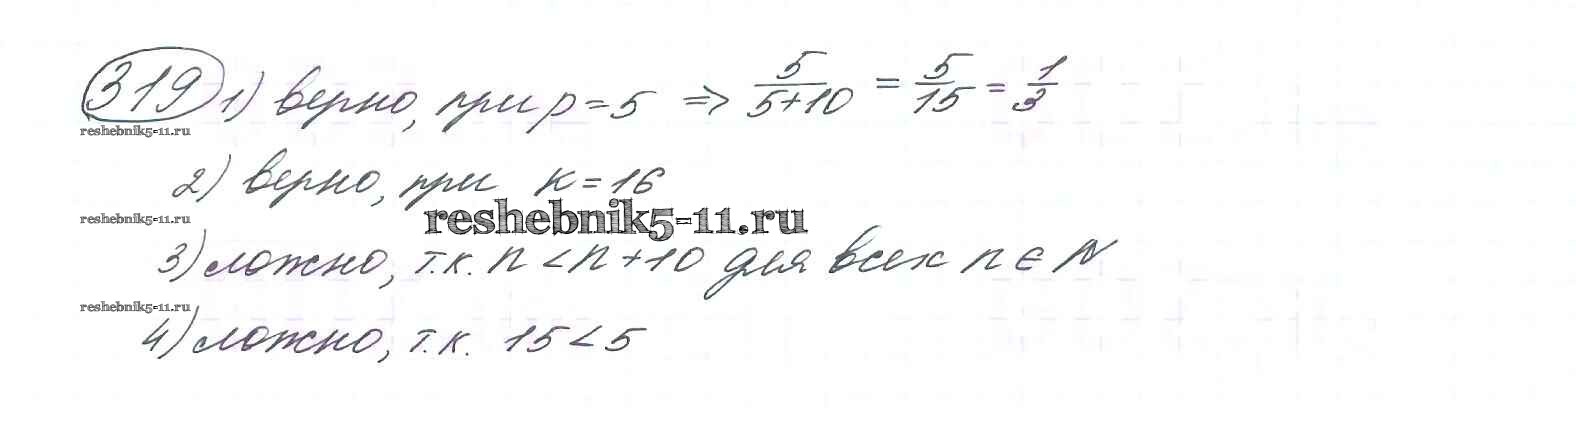 319 1) верно, при p = 5 => 5/(5+10) = 5/15 = 1/3
reshebnik5-11.ru
2) верно, при к = 16
reshebnik5-11.ru
reshebnik5-11.ru
3) ложно, т.к. n < n + 10 для всех n ∈ N
reshebnik5-11.ru
4) ложно, т.к. 15 < 5